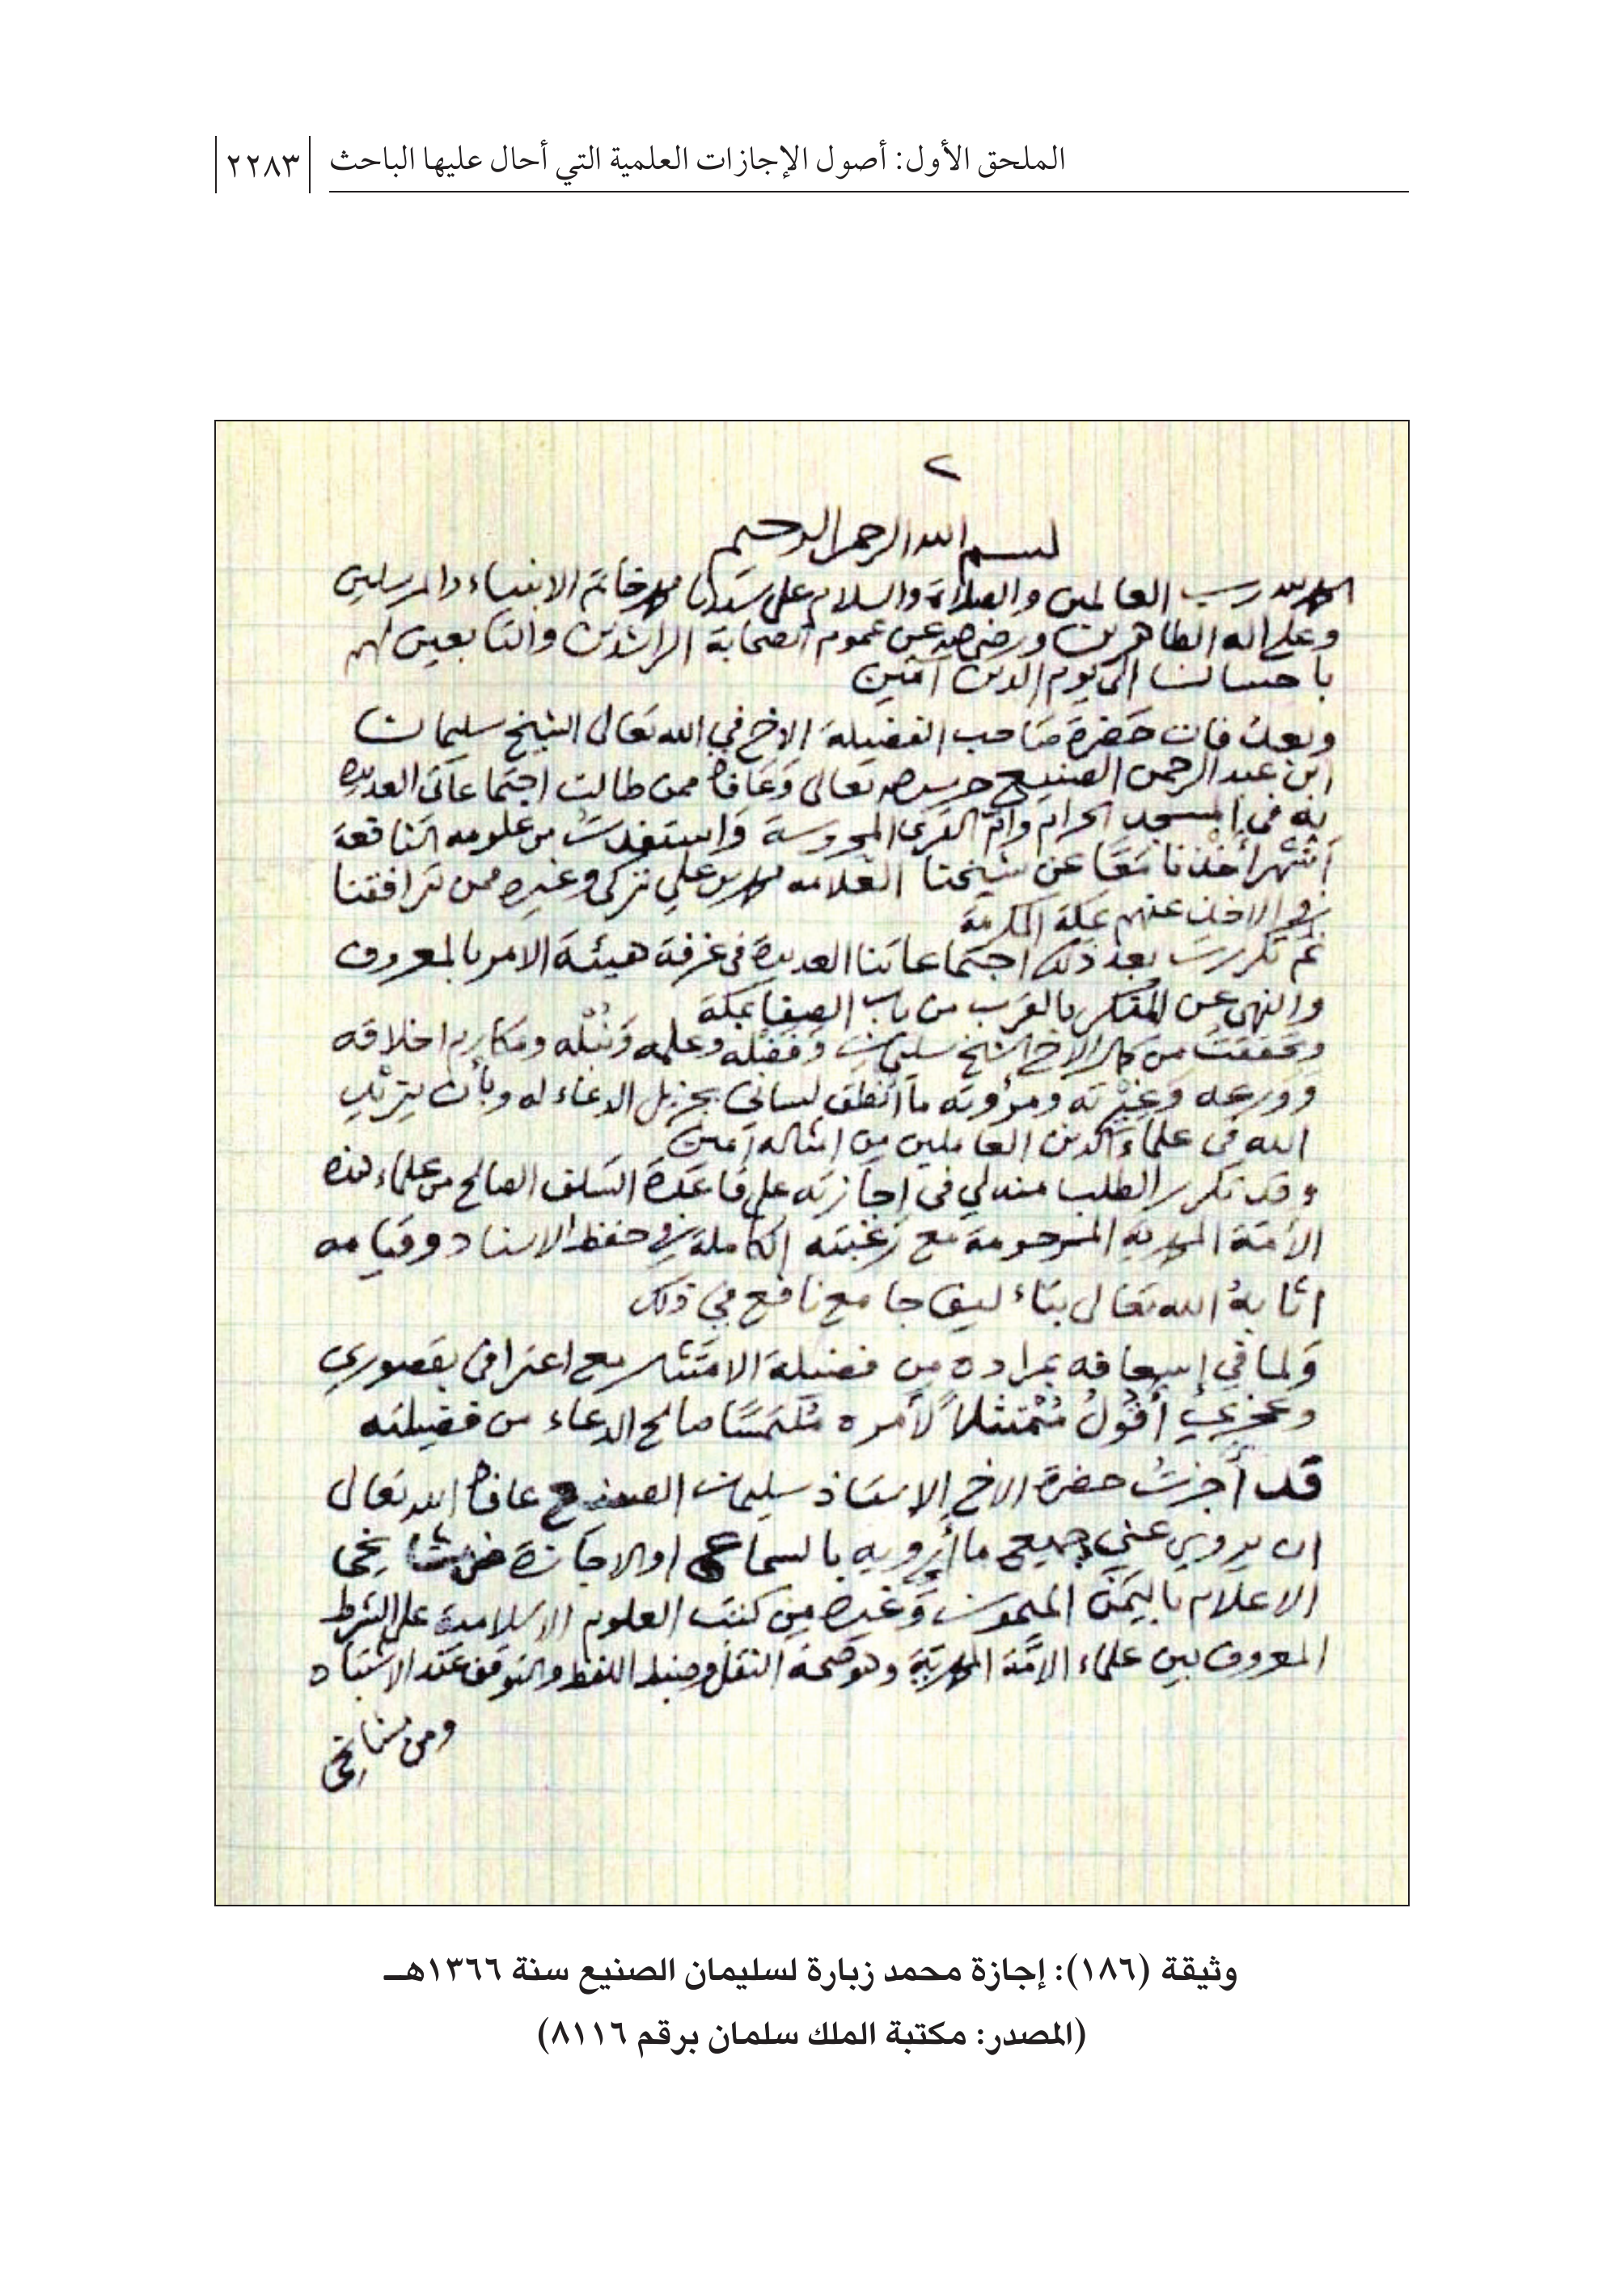 الملحق الأول: أصول الإجازات العلمية التي أحال عليها الباحث ٢٢٨٣
٢
بسم الله الرحمن الرحيم
الحمد لله رب العالمين والصلاة والسلام على سيدنا محمد خاتم الانبياء والمرسلين
وعلى اله الطاهرين ورضي الله عن عموم الصحابة الراشدين والتابعين لهم
باحسان الى يوم الدين آمين
وبعد فان حضرة صاحب الفضيلة الاخ في الله تعالى الشيخ سليمان
ابن عبد الرحمن الصنيع حرسه الله تعالى وعافاه ممن طالت اجتماعاتى العديدة
به في المسجد الحرام وام القرى المحروسة واستفدت من علومه النافعة
اشهرا أخذنا معا عن شيخنا العلامه محمد بن علي تركي وغيره ممن ترافقنا
في الاخذ عنهم بمكة المكرمة
ثم تكررت بعد ذلك اجتماعاتنا العديدة في غرفة هيئة الامر بالمعروف
والنهي عن المنكر بالقرب من باب الصفا بمكة
وتحققت من كمال الاخ الشيخ سليمان وفضله وعلمه ونبله ومكارم اخلاقه
وورعه وغيرته ومروءته ما أنطق لساني بجزيل الدعاء له وبأن يزيد
الله في علماء الدين العاملين من امثاله آمين
وقد تكرر الطلب منه لي في اجازته على قاعدة السلف الصالح من علماء هذه
الأمة المحمدية المرحومة مع رغبته الكاملة في حفظ الاسناد وقيامه
اثابه الله تعالى بتاءليف جامع نافع في ذلك
ولما في إسعافه بمراده من فضيلة الامتثال مع اعترافي بقصوري
وعجزي أقول متمثلاً لأمره ملتمسًا صالح الدعاء من فضيلته
قد أجزت حضرة الاخ الاستاذ سليمان الصنيع عافاه الله تعالى
ان يروي عني جميع ما أرويه بالسماع او الاجازة عن مشايخي
الاعلام باليمن الميمون وغيره من كتب العلوم الاسلامية على الشرط
المعروف بين علماء الامَّة المحمدية وهو صحة النقل وضبط اللفظ والتوقف عند الاشتباه
ومن مشايخي
وثيقة (١٨٦): إجازة محمد زبارة لسليمان الصنيع سنة ١٣٦٦هـ
(المصدر: مكتبة الملك سلمان برقم ٨١١٦)